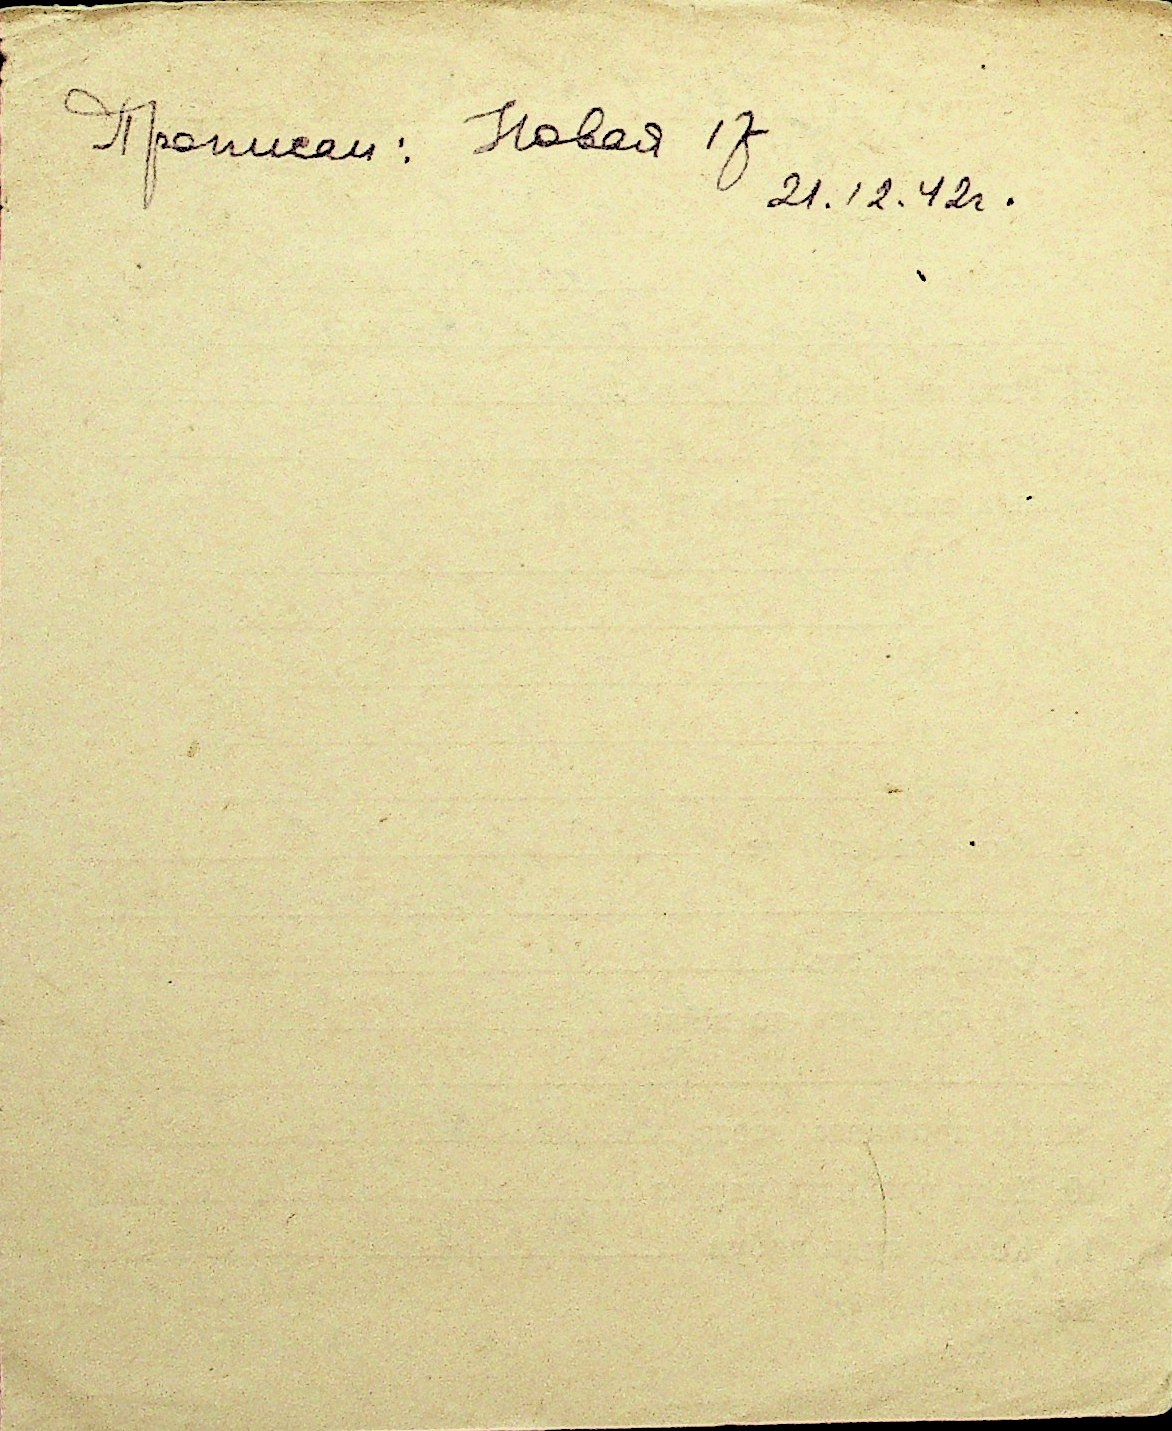 Прописан: Новая 17
21.12.42г.